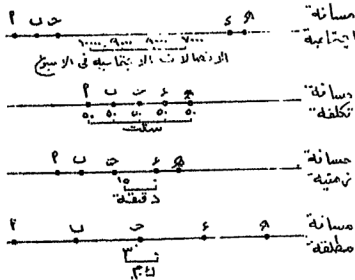 مسافة اجتماعية
أ ب ت ع هـ
١٠٠٠٠ ٩٠٠٠ ٨٠٠٠ ٧٠٠٠
الاتصالات الاجتماعية فى الاسبوع
مسافة تكلفة
أ ب ت ع هـ
٥٠ ٥٠ ٥٠ ٥٠ ٥٠
سنت
مسافة زمنية
أ ب ت ع هـ
١٥
دقيقة
مسافة مطلقة
أ ب ت ع هـ
٣٠
كم